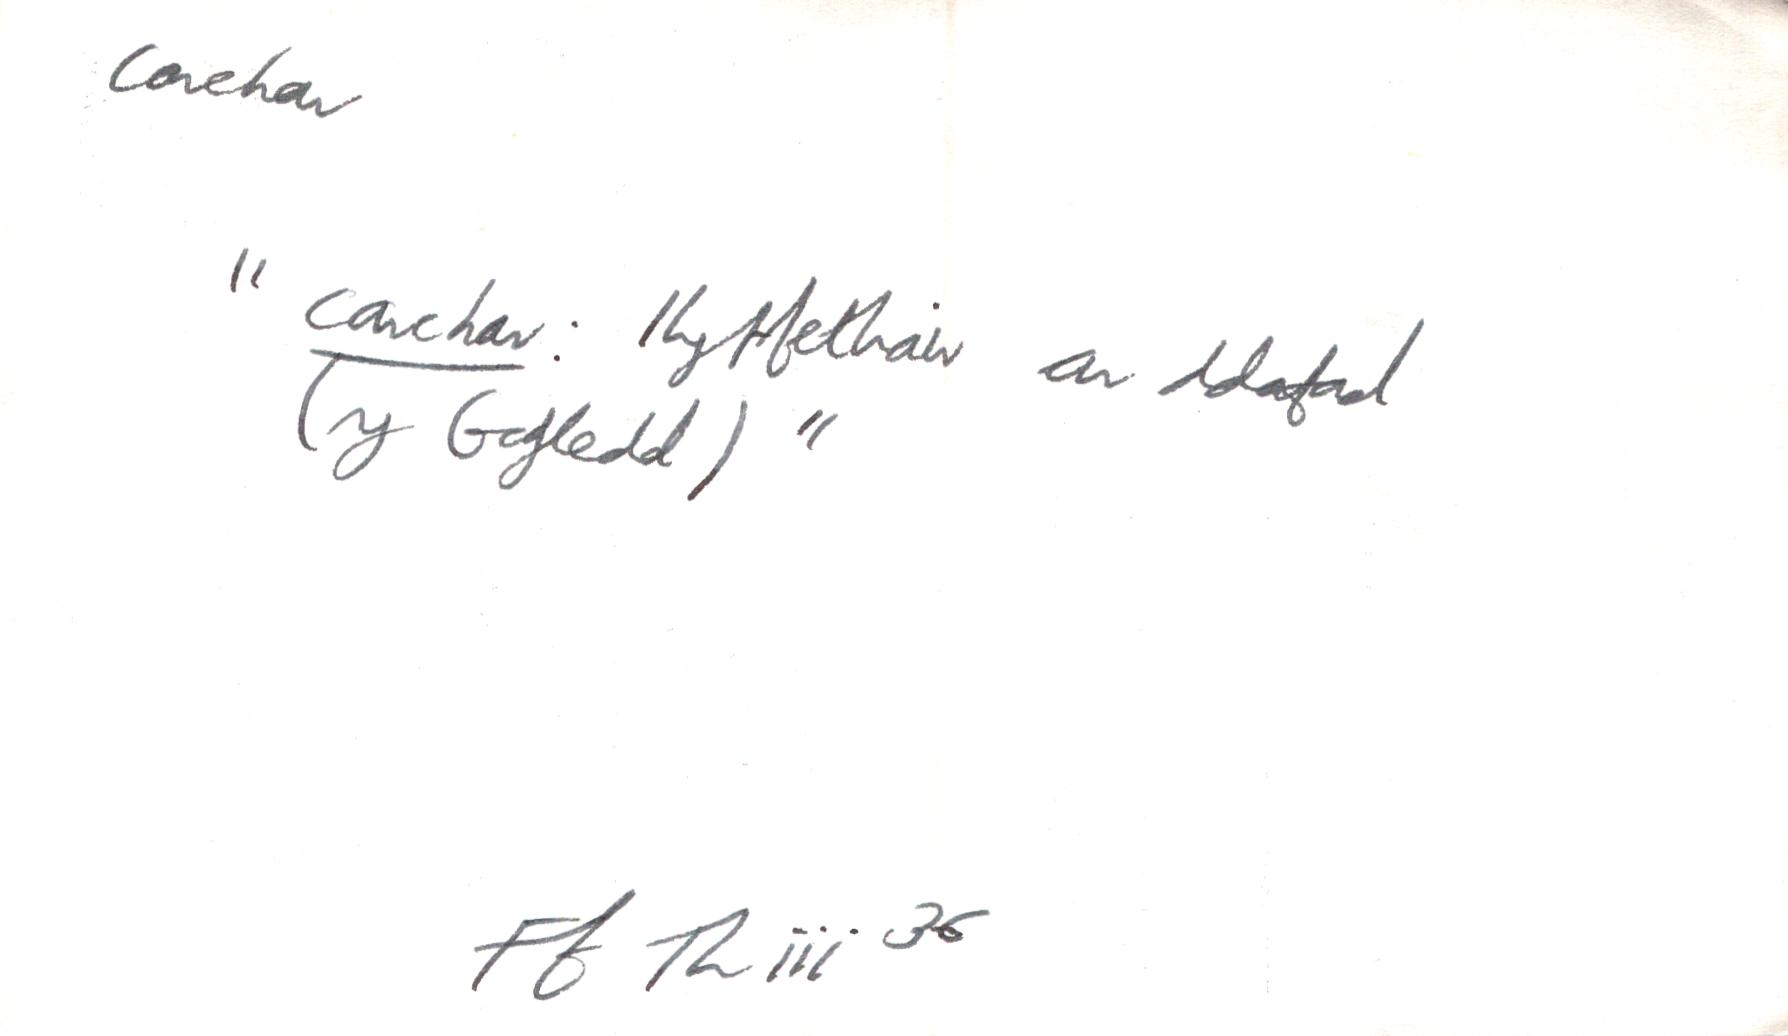 carchar
"carchar: llyffethair ar ddafad
(y Gogledd)"
Ff Th iii 36